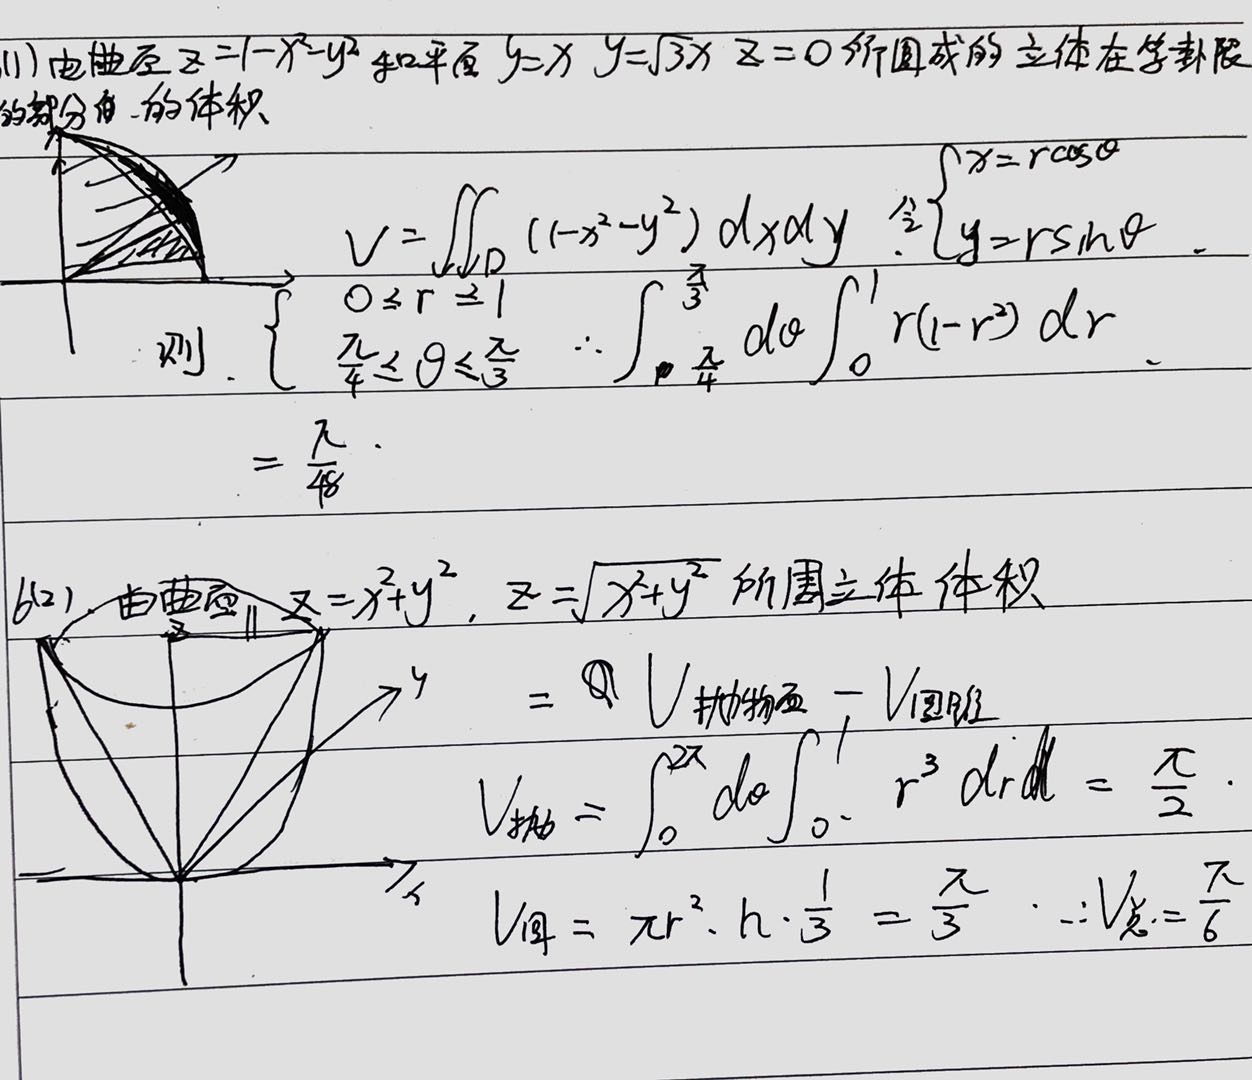 (1) 由曲面 z=1-x²-y² 和平面 y=x y=√3x z=0 所围成的立体在第一卦限
的部分的体积
V=∬_D (1-x²-y²) dxdy. 令 { x=rcosθ y=rsinθ.
则. { 0≤r≤1 π/4≤θ≤π/3 ∴ ∫_{π/4}^{π/3} dθ ∫_0^1 r(1-r²) dr.
= π/48.
6(2). 由曲面 z=x²+y², z=√(x²+y²) 所围立体体积
z
y
= V抛物面 - V圆锥
V抛 = ∫_0^{2π} dθ ∫_0^1 r³ dr = π/2.
x
V圆 = πr²·h·1/3 = π/3. ∴V总.=π/6